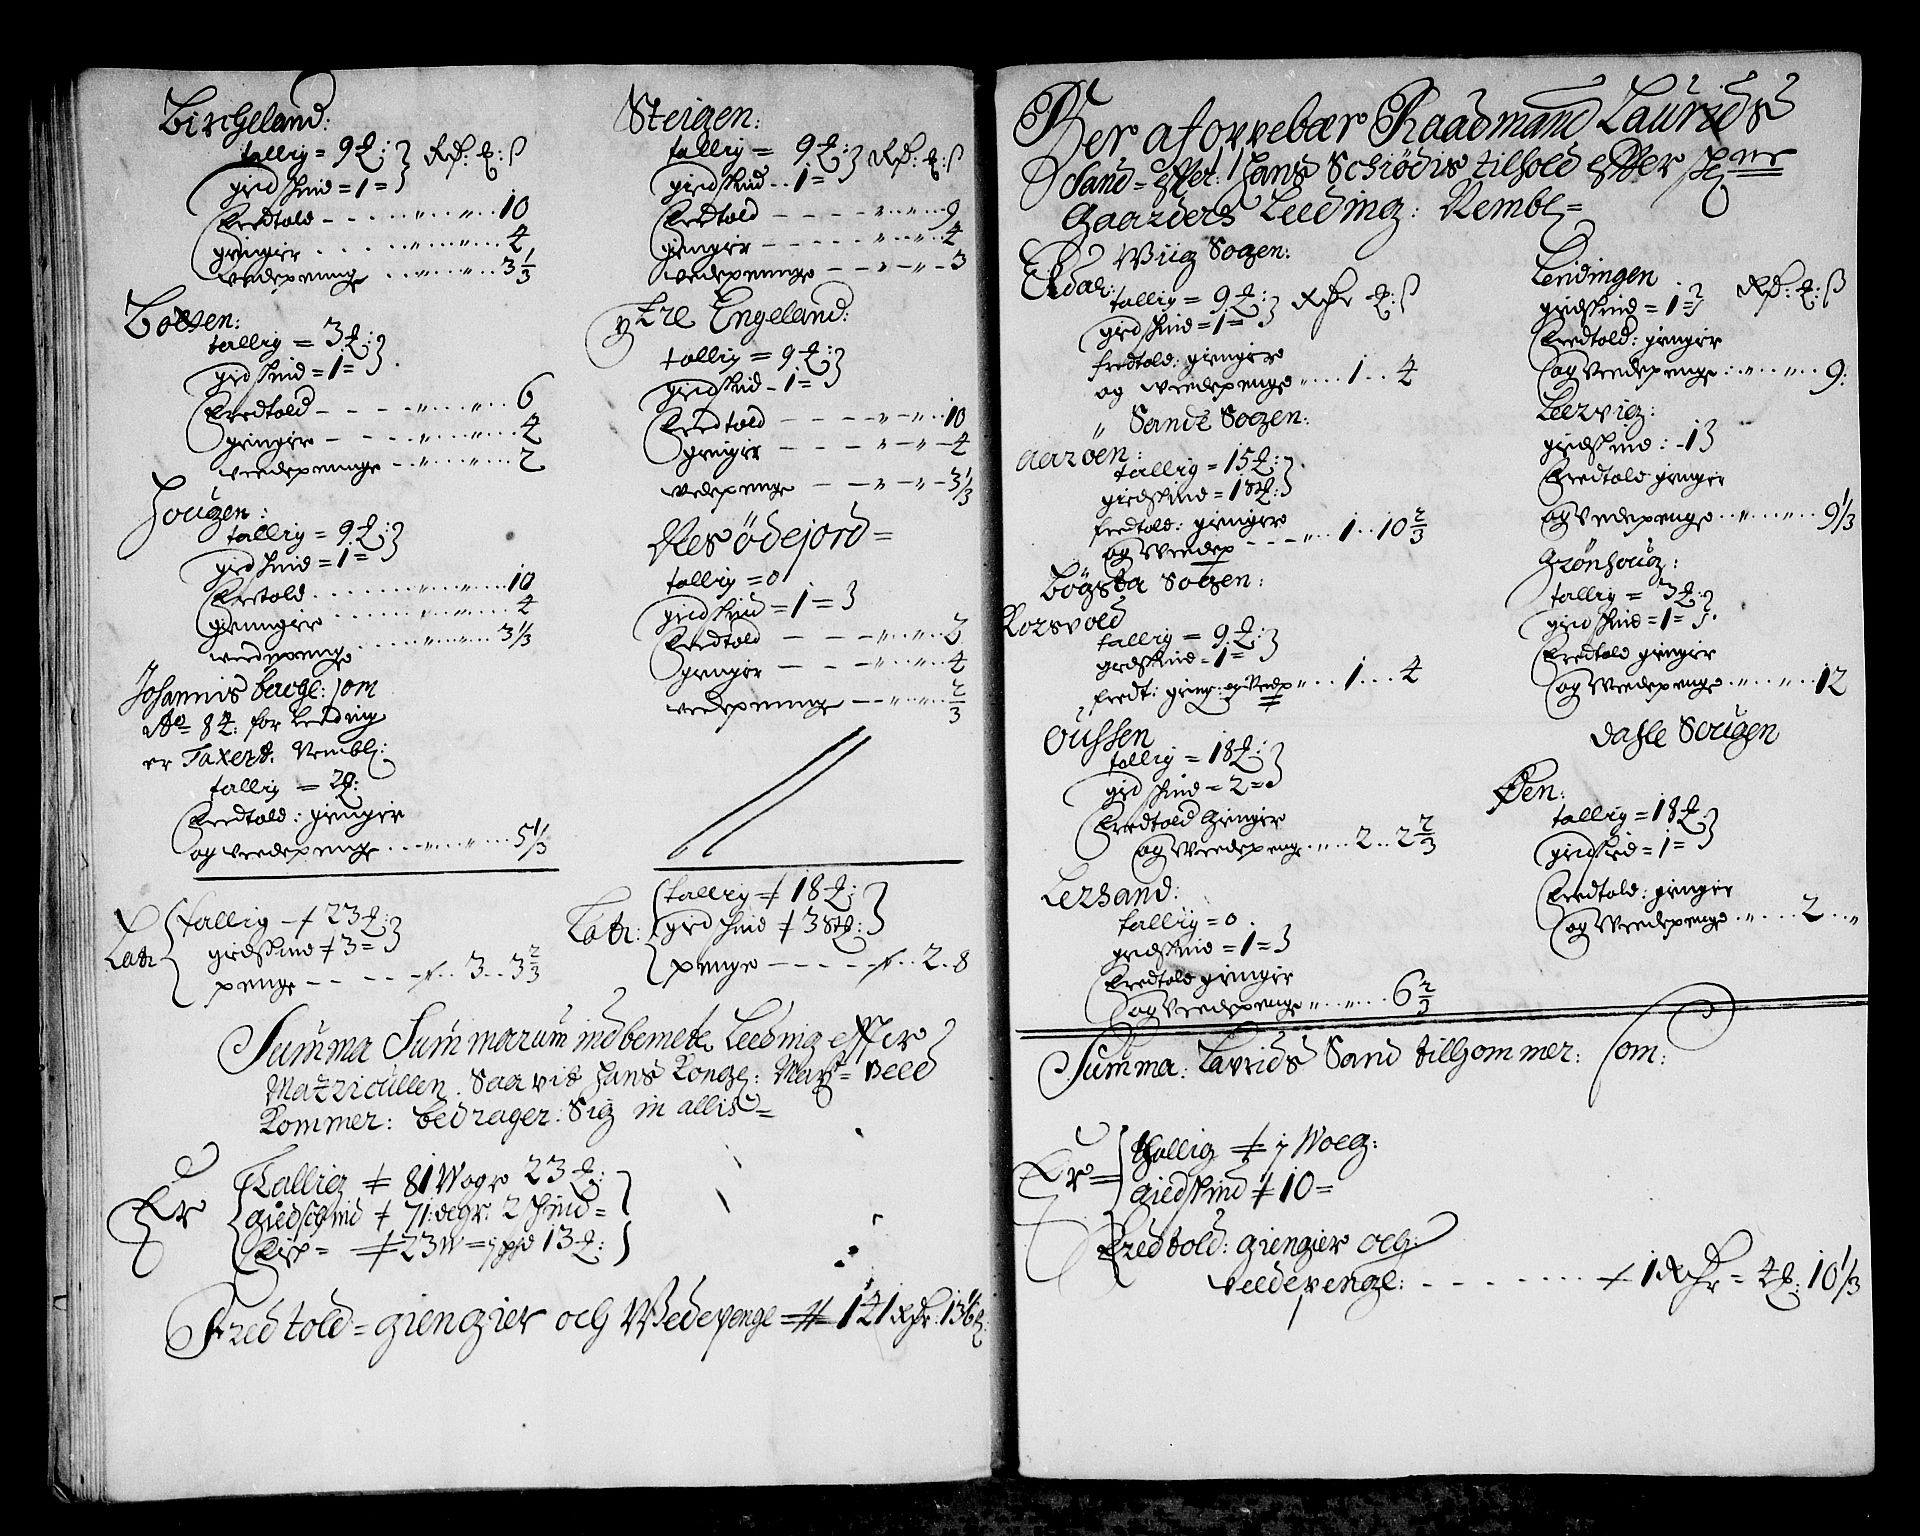 Bircheland:
tallig = 9 ℔: } Rd: ℔: ß
giedskind = 1 =
Fredtold - - - - „ - - „ - - 10
giengier - - - - „ - - „ - - 4
Veedepenge - - „ - - „ - - 3 1/3
Boesen:
tallig = 3 ℔: }
giedskind = 1 =
Fredtold - - - „ - - „ - - 6
giengier - - - „ - - „ - - 4
Veedepenge - - „ - - „ - - 2
Hougen:
tallig = 9 ℔: }
giedskind = 1 =
Fredtold - - - „ - - „ - - 10
giengier - - - „ - - „ - - 4
Veedepenge - - „ - - „ - - 3 1/3
Johannis berge: som
Ao 84: for Leeding
er Taxert. Nembl:
tallig = 2 ℔:
Fredtold: giengier
og Veedepenge - - „ - - „ - - 5 1/3
Latr
tallig ‡ 23 ℔: }
giedskind ‡ 3 =
penge - - - - ‡ - - 3 - - 3 2/3
Steigen:
tallig = 9 ℔: } Rd: ℔: ß
giedskind - - 1 =
Fredtold - - - - „ - - „ - - 9
giengier - - - - „ - - „ - - 4
Vedepenge - - „ - „ - 3
ytre Engeland:
tallig = 9 ℔: }
giedskind - 1 =
Fredtold - - - „ - „ - - 10
giengier - - - „ - „ - 4
Vedepenge - - „ - „ - 3 1/3
Nes ödejord =
tallig = 0
giedskind = 1 = }
Fredtold - - - „ - - „ - - 2
giengier - - - „ - - „ - - 4
Vedepenge - - „ - - „ - - 2/3
Latr:
tallig ‡ 18 ℔: }
giedskind ‡ 3 Stk:
penge - - - - ‡ - - 2 - - 8
Summa Summarum indbemelte Leeding effter
Matricullen. Saa vit hans Kongl: Mayt= veed
Kommer: bedrager: Sig in allis =
Er
Tallig ‡ 81 Wogr 23 ℔:
giedschind ‡ 71: degr: 2 skind =
Fisk = ‡ 23 W = 1 pd 13 ℔:
Fredtold = giengier och Wedepenge = ‡ 141 Rdr: 13 1/6 ß:
Her aforvebær Raadmand Laurids
Sand = effter: Hans Schiödis tilhold effter
gaarders Leeding: Nembl =
Wiig Sogen:
Eldal:
tallig = 9 ℔: } Rdr ℔: ß
giedskind = 1 =
fredtold: giengier
og Veedepenge „ - - 1 - - 4
„ Sande Sogen:
Aarøen:
tallig = 15 ℔: }
giedskind = 1 Stk:
fredtold: giengier
og Veedep - - - „ - - 1 - - 10 2/3
Bögsta Sogen:
Korsvold
tallig = 9 ℔: }
giedskind = 1 =
fredt: gieng: og Vedp „ - - 1 - - - 4
Oussen
tallig = 18 ℔: }
giedskind = 2 =
Fredtold giengier
og Veedepenge „ - - 2 - - 2 2/3
Lersand:
tallig = 0 .
giedskind = 1 = }
Fredtold giengier
og Veedepenge „ - - „ - - 6 2/3
Leridingen
giedskind = 1 = } Rd: ℔: ß
Fredtold: giengier
og Veedepenge - - „ - - „ - - 9:
Leervig:
giedskind: - 1 }
Fredtold giengier
og Vedepenge - - „ - - „ - - 9 1/3
Grönhoug:
tallig = 3 ℔: }
giedskind = 1 =
Fredtold giengier
og Veedepenge - - „ - - „ - - 12
Dahle Sougen
Øen:
tallig = 18 ℔: }
giedskind = 1 =
Fredtold: giengier
og Veedepenge - - „ - - 2 - - „
Summa: Laurids Sand tillkommer: som:
Er =
Tallig ‡ 7 Woeg:
giedskind ‡ 10 =
Fredtold: giengier och:
Veedepenge: - - - - - - ‡ 1 Rdr = 4 ℔: 10 1/3